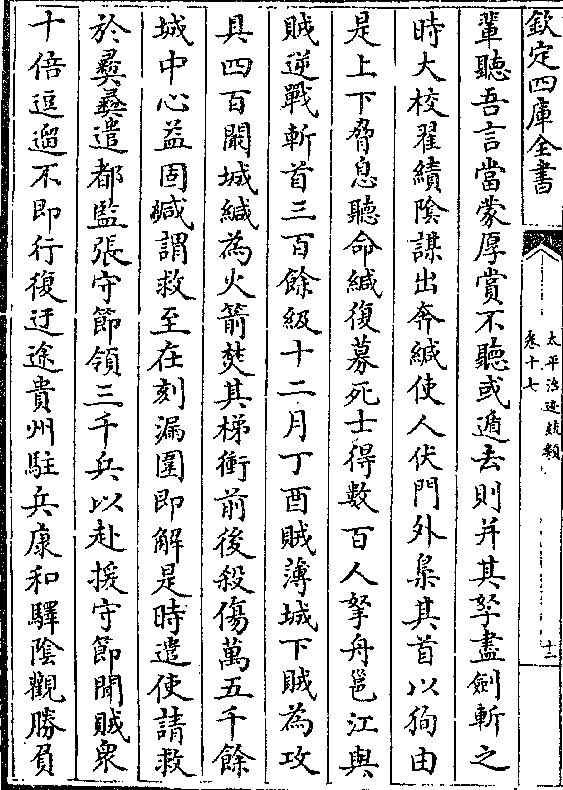 欽定四庫全書
太平治迹統類
卷十七
十二
輩聽吾言當蒙厚賞不聽或遁去則并其孥盡劍斬之
時大校翟績陰謀出奔緘使人伏門外梟其首以狥由
是上下脅息聽命緘復募死士得數百人拏舟邕江與
賊逆戰斬首三百餘級十二月丁酉賊薄城下賊為攻
具四百閙城緘為火箭焚其梯衝前後殺傷萬五千餘
城中心益固緘謂救至在刻漏圍即解是時遣使請救
於彞彞遣都監張守節領三千兵以赴援守節聞賊衆
十倍逗遛不即行復迂途貴州駐兵康和驛陰觀勝負